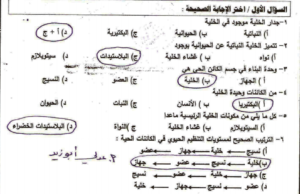 السؤال الأول / اختر الإجابة الصحيحة :
١-جدار الخلية موجود في الخلية
أ) النباتية ب) الحيوانية ج) البكتيرية د) أ + ج
٢-تتميز الخلية النباتية عن الحيوانية بوجود
أ) نواه ب) غشاء الخلية ج) البلاستيدات د) سيتوبلازم
٣-وحدة البناء في جسم الكائن الحي هي
أ) الجهاز ب) الخلية ج) العضو د) النسيج
٤-من الكائنات وحيدة الخلية
أ) البكتيريا ب) الأنسان ج) النبات د) الحيوان
٥-كل ما يلي من مكونات الخلية الرئيسية ماعدا
أ) السيتوبلازم ب) غشاء الخلية ج) النواة د) البلاستيدات الخضراء
٦-الترتيب الصحيح لمستويات التنظيم الحيوي في الكائنات الحية :
أ) نسيج خلية عضو جهاز
ب) خلية نسيج عضو جهاز
ج) جهاز عضو خلية نسيج
د) عضو نسيج جهاز خلية